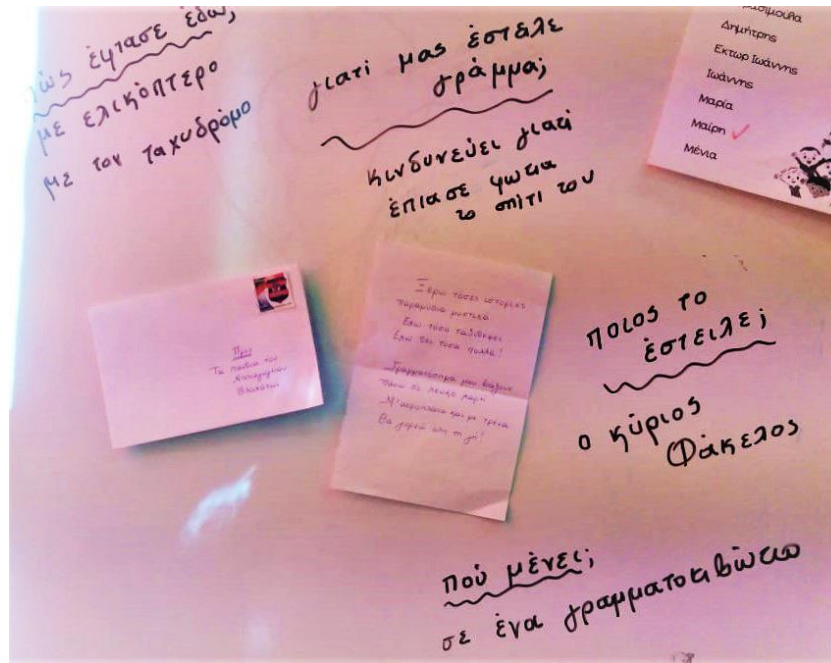 πώς έφτασε εδώ;
με ελικόπτερο
με τον ταχυδρόμο
γιατί μας έστειλε
γράμμα;
κινδυνεύει γιατί
έπιασε φωτια
το σπίτι του
Δημήτρης
Εκτωρ Ιωάννης
Ιωάννης
Μαρία
Μαίρη
Μένια
Προς
Τα παιδιά του
Νηπιαγωγείου
Ξέρω τόσες ιστορίες
παραμύθια μυστικά
Έχω τόσα ταξιδέψει
Έχω δει τόσα πολλά!
Γραμματόσημα μου βάζουν
πάνω σε λευκό χαρτί
Μ'αεροπλάνα και με τρένα
Θα γυρίσω όλη τη γη!
ποιος το
έστειλε;
ο κύριος
Φάκελος
πού μένει;
σε ένα γραμματοκιβώτιο